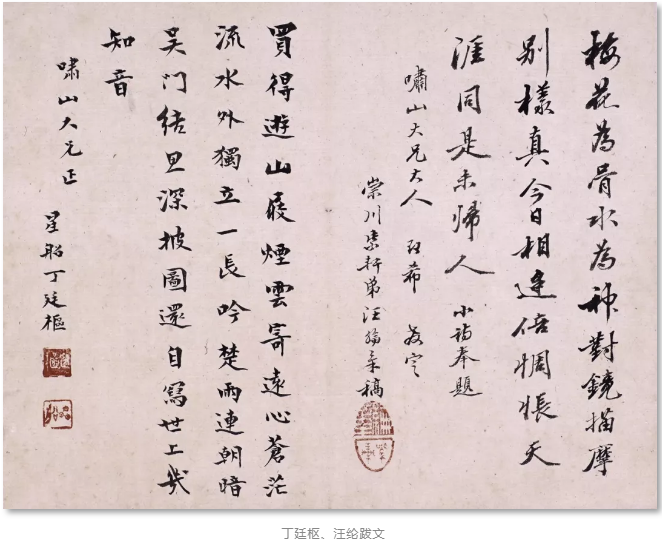 梅花為骨水為神對鏡描摩
别樣真今日相逢倍惆悵天
涯同是未歸人 小詩奉題
嘯山大兄大人 希 教定
崇川紫軒弟汪綸稿
買得遊山屐煙雲寄遠心蒼茫
流水外獨立一長吟楚雨連朝暗
吴门结深披圖還自寫世上幾
知音
嘯山大兄正
星船丁廷樞
丁廷枢、汪纶跋文